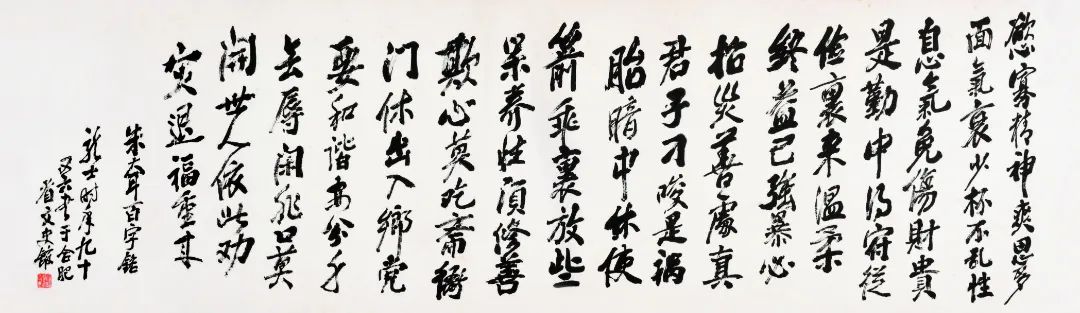 慾寡精神爽思多
血氣衰少杯不乱性
忍氣免傷財貴
是勤中得富從
儉裏来温柔
終益己強暴必
招災善處真
君子刁唆是禍
胎暗中休使
箭乖裏放些
呆养性須修善
欺心莫吃齋衙
门休出入鄉党
要和諧安分身
无辱闲非口莫
開世人依此劝
灾退福重来
朱夫子百字銘
龙士时年九十
又六书于合肥
省文史館